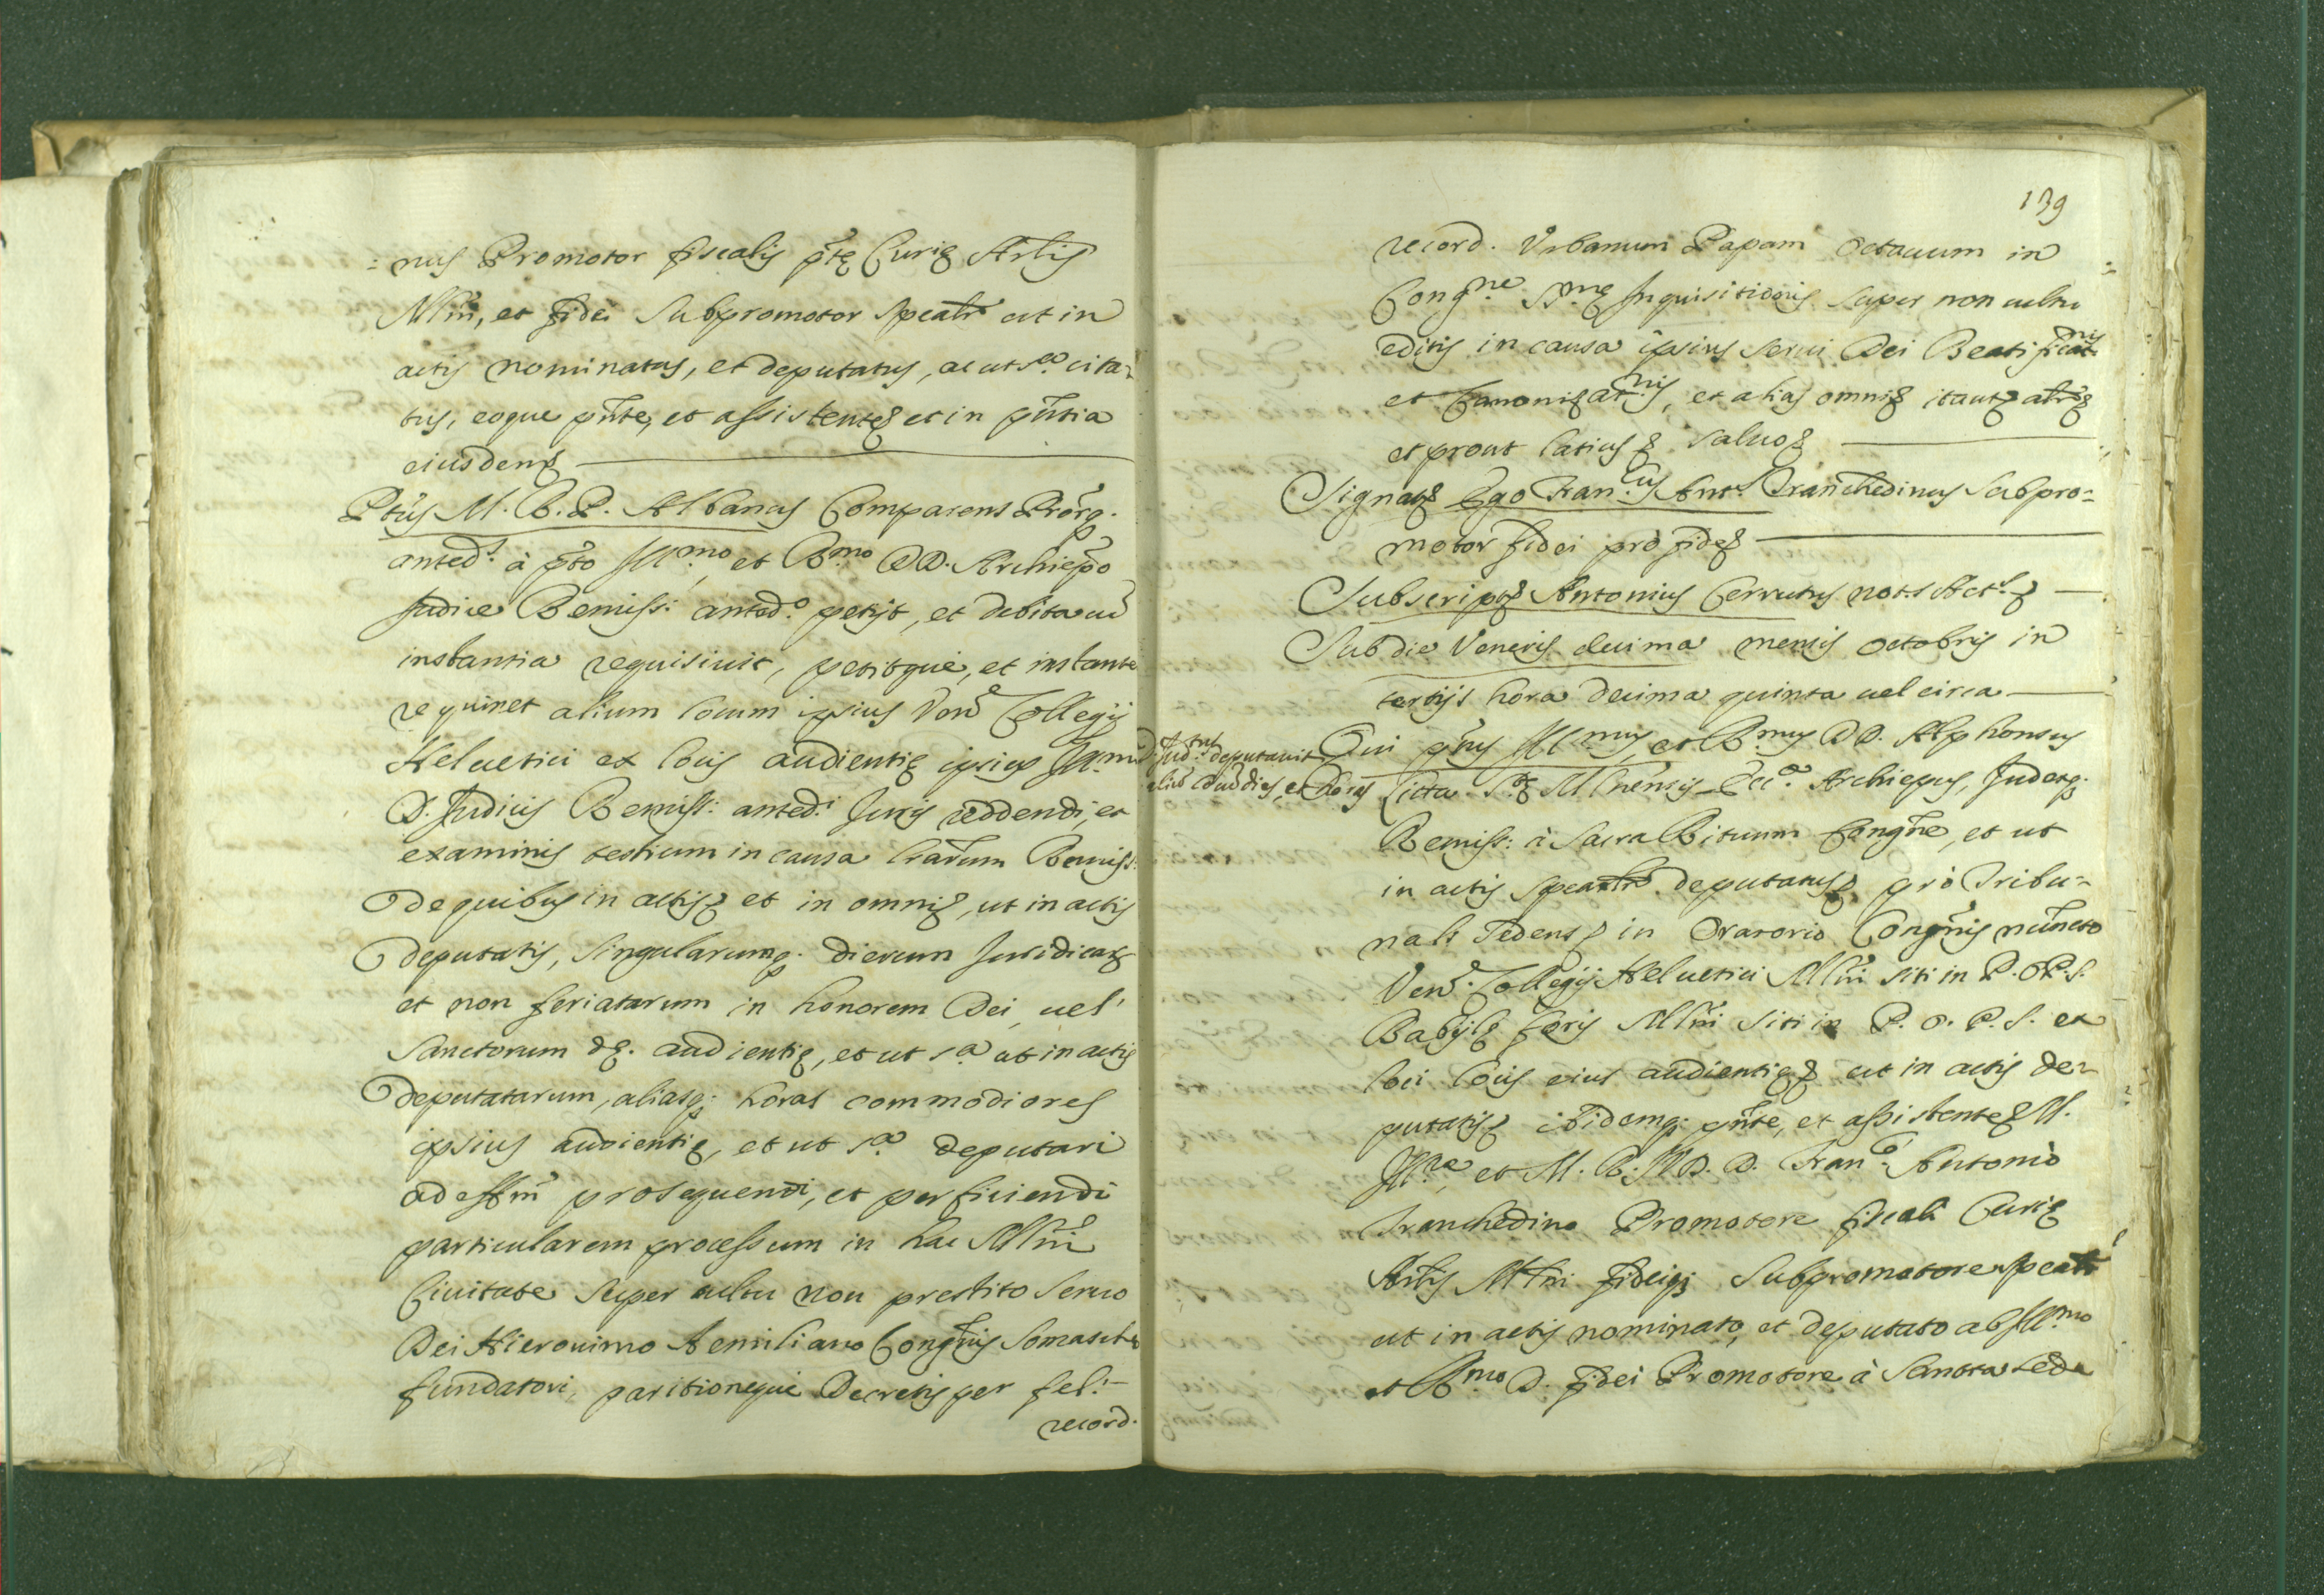 =nus Promotor fiscalis p̃tę Curię Arl̃is
Mlñi, et fidei Subpromotor spealr̃ ut in
actis nominatus, et deputatus, ac ut s.ª cita=
tus, eoque pñte, et assistente et in pñtia
eiusdem
Ptũs M. R. P. Albanus Comparens Prõrq.
anted.s à p̃to Ill.mo et R.mo DD. Archiepõ
Judice Remiss: anted.o petijt, et debita cũ
instantia requisiuit, petitque, et instanter
requiret alium locum ipsius Ven. Collegij
Heluetici ex locis audientię ipsius Ill.mi
D. Judicis Remiss: anted.i Juris reddendi, et
examinis testium in causa lrãrum Remiss:
de quibus in actis et in omni, ut in actis
deputatis, singularumq. dierum Juridicar
et non feriatarum in honorem Dei, uel
Sanctorum audientię, et ut s.ª ut in actis
deputatarum, aliasq; horas commodiores
ipsius audientię, et ut s.ª deputari
ad effm̃ prosequendi, et perficiendi
particularem processum in hac Mlñi
Ciuitate super cultu non prestito Seruo
Dei Hieronimo Aemiliano Congñis Somaschę
fundatori, paritioneque Decretis per fel:
record.
139
record. Vrbanum Papam octauum in
Cong.ne S.mę Inquisitionis super non cultu
editis in causa ipsius serui Dei Beatificat.nis
et Canonizat.nis, et alias omni itaut
et prout latius saluo
Signat Ego Fran.cus Ant.s Tranchedinus Subpro=
motor fidei pro fide
Subscript Antonius Cerrutus not.s Act.s
Sub die Veneris decima mensis octobris in
tertijs hora decima quinta uel circa
D. Jud. deputauit
aliũ locũ dies, et horas
Qui p̃tus Ill.mus, et R.mus DD. Alphonsus
Licta S. Mlnẽnsis Ecc.ę Archiepus, Judexq.
Remiss: à Sacra Rituum Congñe, et ut
in actis spealr̃ deputatus pro Tribu=
nali sedens in Oratorio Congñis nũncto
Ven. Collegij Heluetici Mlñi siti in P. O. P. S.
Babilę foris Mlñi siti in P. O. P. S. ex
loci locis eius audientię ut in actis de=
putatis ibidemq; pñte, et assistente M.
Ill.re et M. R. J.V.D. D. Fran.co Antonio
Tranchedino Promotore fiscali Curię
Arl̃is Mlñi fideiq; Subpromotore spealr̃
ut in actis nominato, et deputato ab Ill.mo
et R.mo D. fidei Promotore à Sancta sede